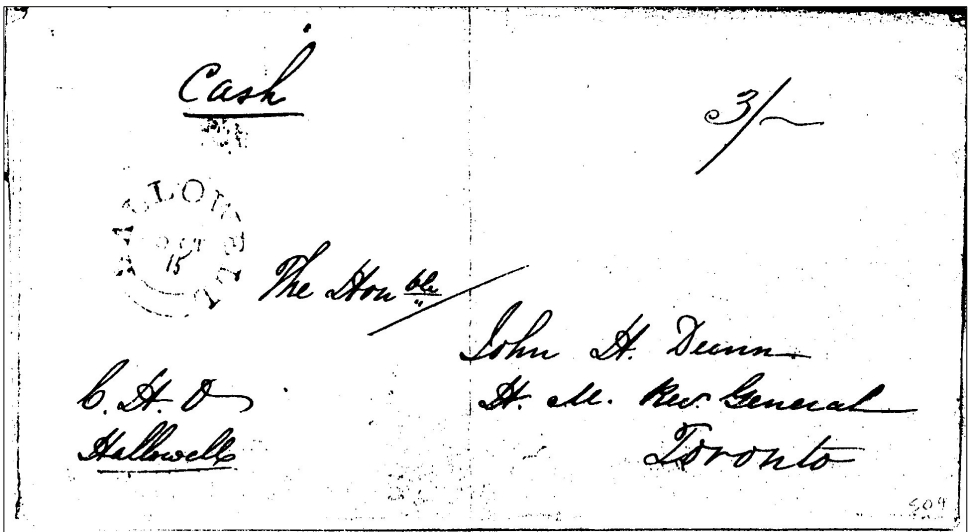 Cash
3/-
HALLOWELL
OCT
15
The Honble
John H. Dunn
H. M. Rev. General
Toronto
C. H. O
Hallowell
504